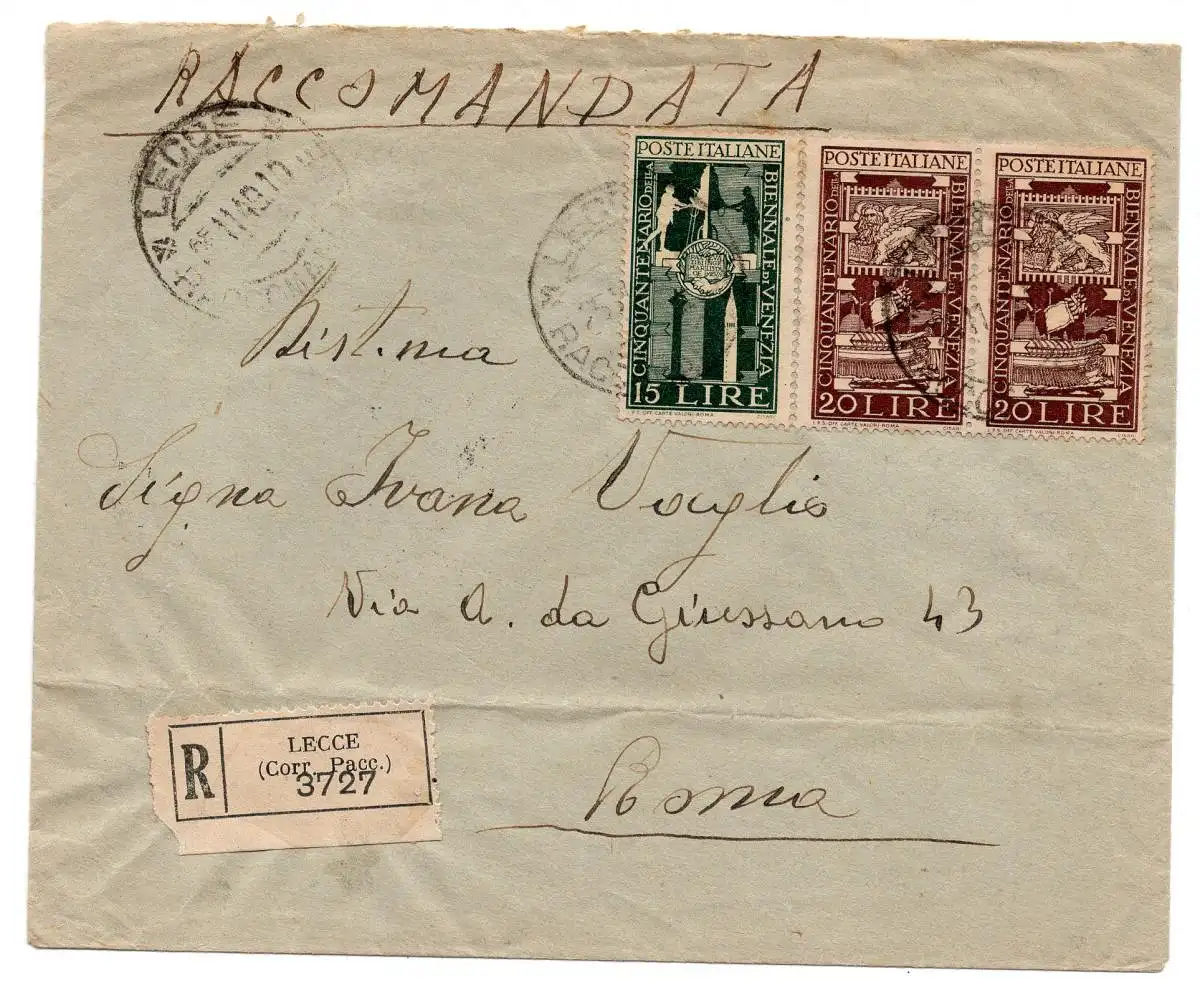 RACCOMANDATA
LECCE
POSTE ITALIANE
CINQUANTENARIO DELLA
BIENNALE DI VENEZIA
15 LIRE
I.P.S. OFF. CARTE VALORI-ROMA
POSTE ITALIANE
CINQUANTENARIO DELLA
BIENNALE DI VENEZIA
20 LIRE
I.P.S. OFF. CARTE VALORI-ROMA
POSTE ITALIANE
CINQUANTENARIO DELLA
BIENNALE DI VENEZIA
20 LIRE
I.P.S. OFF. CARTE VALORI-ROMA
Signa Ivana Vaglio
Via A. da Giussano 43
Roma
R
LECCE
(Corr. Pacc.)
3727